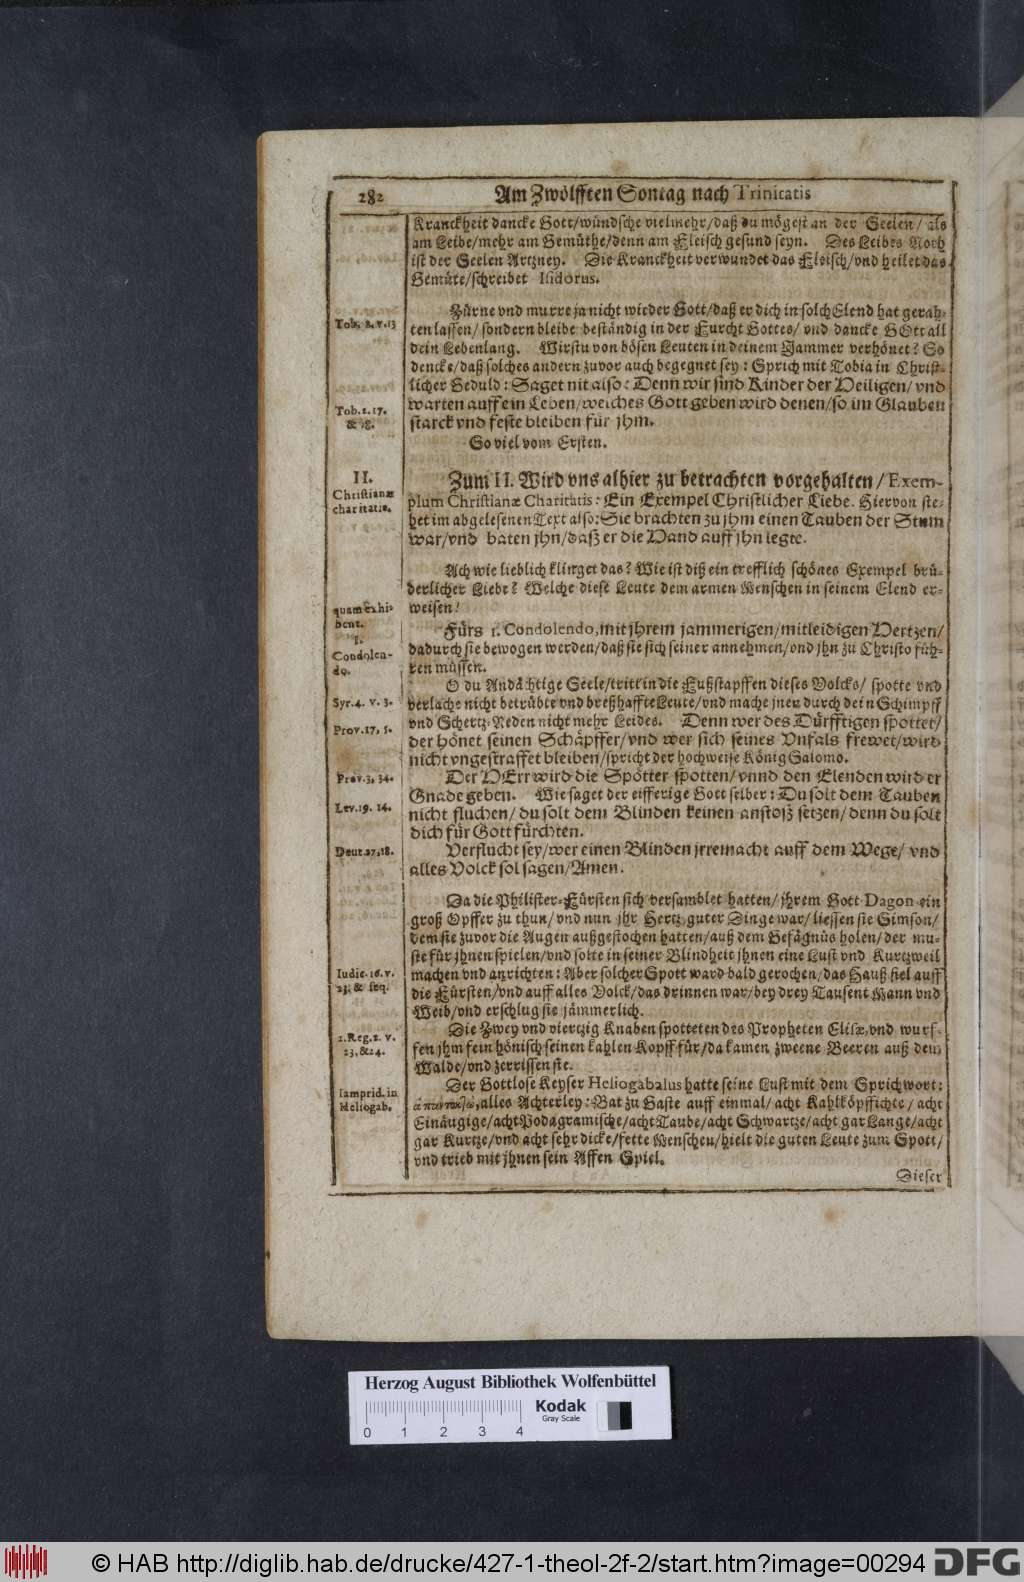 282
Am Zwölfften Sontag nach Trinitatis
Kranckheit dancke Gott/wündsche vielmehr/daß du mögest an der Seelen/ als
am Leibe/mehr am Gemüthe/denn am Fleisch gesund seyn. Des Leibes Noth
ist der Seelen Artzney. Die Kranckheit verwundet das Fleisch/vnd heilet das
Gemüte/schreibet Isidorus.
Tob. 2. v. 13
Zürne vnd murre ja nicht wieder Gott/daß er dich in solch Elend hat gerah-
ten lassen/ sondern bleibe beständig in der Furcht Gottes/ vnd dancke GOtt all
dein Lebenlang. Wirstu von bösen Leuten in deinem Jammer verhönet? So
dencke/daß solches andern zuvor auch begegnet sey: Sprich mit Tobia in Christ-
licher Geduld: Saget nit also: Denn wir sind Kinder der Heiligen/ vnd
Tob. 2. 17.
& 18.
warten auff ein Leben/welches Gott geben wird denen/so im Glauben
starck vnd feste bleiben für jhm.
So viel vom Ersten.
II.
Christianæ
charitatis.
Zum II. Wird vns alhier zu betrachten vorgehalten/ Exem-
plum Christianæ Charitatis: Ein Exempel Christlicher Liebe. Hiervon ste-
het im abgelesenen Text also: Sie brachten zu jhm einen Tauben der Stum
war/vnd baten jhn/daß er die Hand auff jhn legte.
Ach wie lieblich klinget das? Wie ist diß ein trefflich schönes Exempel brü-
derlicher Liebe? Welche diese Leute dem armen Menschen in seinem Elend er-
quam exhi-
bent.
weisen!
1.
Condolen-
do.
Fürs 1. Condolendo, mit jhrem jammerigen/mitleidigen Hertzen/
dadurch sie bewogen werden/daß sie sich seiner annehmen/vnd jhn zu Christo füh-
ren müssen.
O du Andächtige Seele/tritt in die Fußstapffen dieses Volcks/ spotte vnd
Syr. 4. v. 3.
verlache nicht betrübte vnd breßhaffte Leute/vnd mache jnen durch dein Schimpff
vnd Schertz-Reden nicht mehr Leides. Denn wer des Dürfftigen spottet/
Prov. 17, 5.
der hönet seinen Schäpffer/vnd wer sich seines Vnfals frewet/wird
nicht vngestraffet bleiben/spricht der hochweise König Salomo.
Prov. 3, 34.
Der HErr wird die Spötter spotten/vnnd den Elenden wird er
Gnade geben. Wie saget der eifferige Gott selber: Du solt dem Tauben
Lev. 19. 14.
nicht fluchen/ du solt dem Blinden keinen anstoß setzen/ denn du solt
dich für Gott fürchten.
Deut. 27, 18.
Verflucht sey/wer einen Blinden jrremacht auff dem Wege/ vnd
alles Volck sol sagen/Amen.
Da die Philister-Fürsten sich versamblet hatten/ jhrem Gott Dagon ein
groß Opffer zu thun/vnd nun jhr Hertz guter Dinge war/ liessen sie Simson/
dem sie zuvor die Augen außgestochen hatten/auß dem Gefägnüs holen/ der mu-
ste für jhnen spielen/vnd solte in seiner Blindheit jhnen eine Lust vnd Kurtzweil
Iudic. 16. v.
23. & seq.
machen vnd anrichten: Aber solcher Spott ward bald gerochen/das Hauß fiel auff
die Fürsten/vnd auff alles Volck/das drinnen war/bey drey Tausent Mann vnd
Weib/vnd erschlug sie jämmerlich.
2. Reg. 2. v.
23. & 24.
Die Zwey vnd viertzig Knaben spotteten des Propheten Elisæ, vnd wurf-
fen jhm fein hönisch seinen kahlen Kopff für/da kamen zweene Beeren auß dem
Walde/vnd zerrissen sie.
Lamprid. in
Heliogab.
Der Gottlose Keyser Heliogabalus hatte seine Lust mit dem Sprichwort:
alles Achterley: Bat zu Gaste auff einmal/ acht Kahlköpffichte/ acht
Einäugige/acht Podagramische/acht Taube/acht Schwartze/acht gar Lange/acht
gar Kurtze/vnd acht sehr dicke/fette Menschen/hielt die guten Leute zum Spott/
vnd trieb mit jhnen sein Affen Spiel.
Dieser
Herzog August Bibliothek Wolfenbüttel
Kodak
Gray Scale
0 1 2 3 4
© HAB http://diglib.hab.de/drucke/427-1-theol-2f-2/start.htm?image=00294
DFG